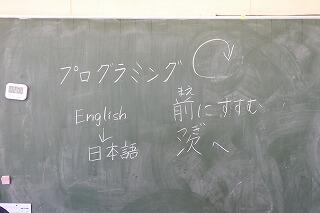 プログラミング
English
↓
日本語
まえ
前にすすむ
つぎ
次へ